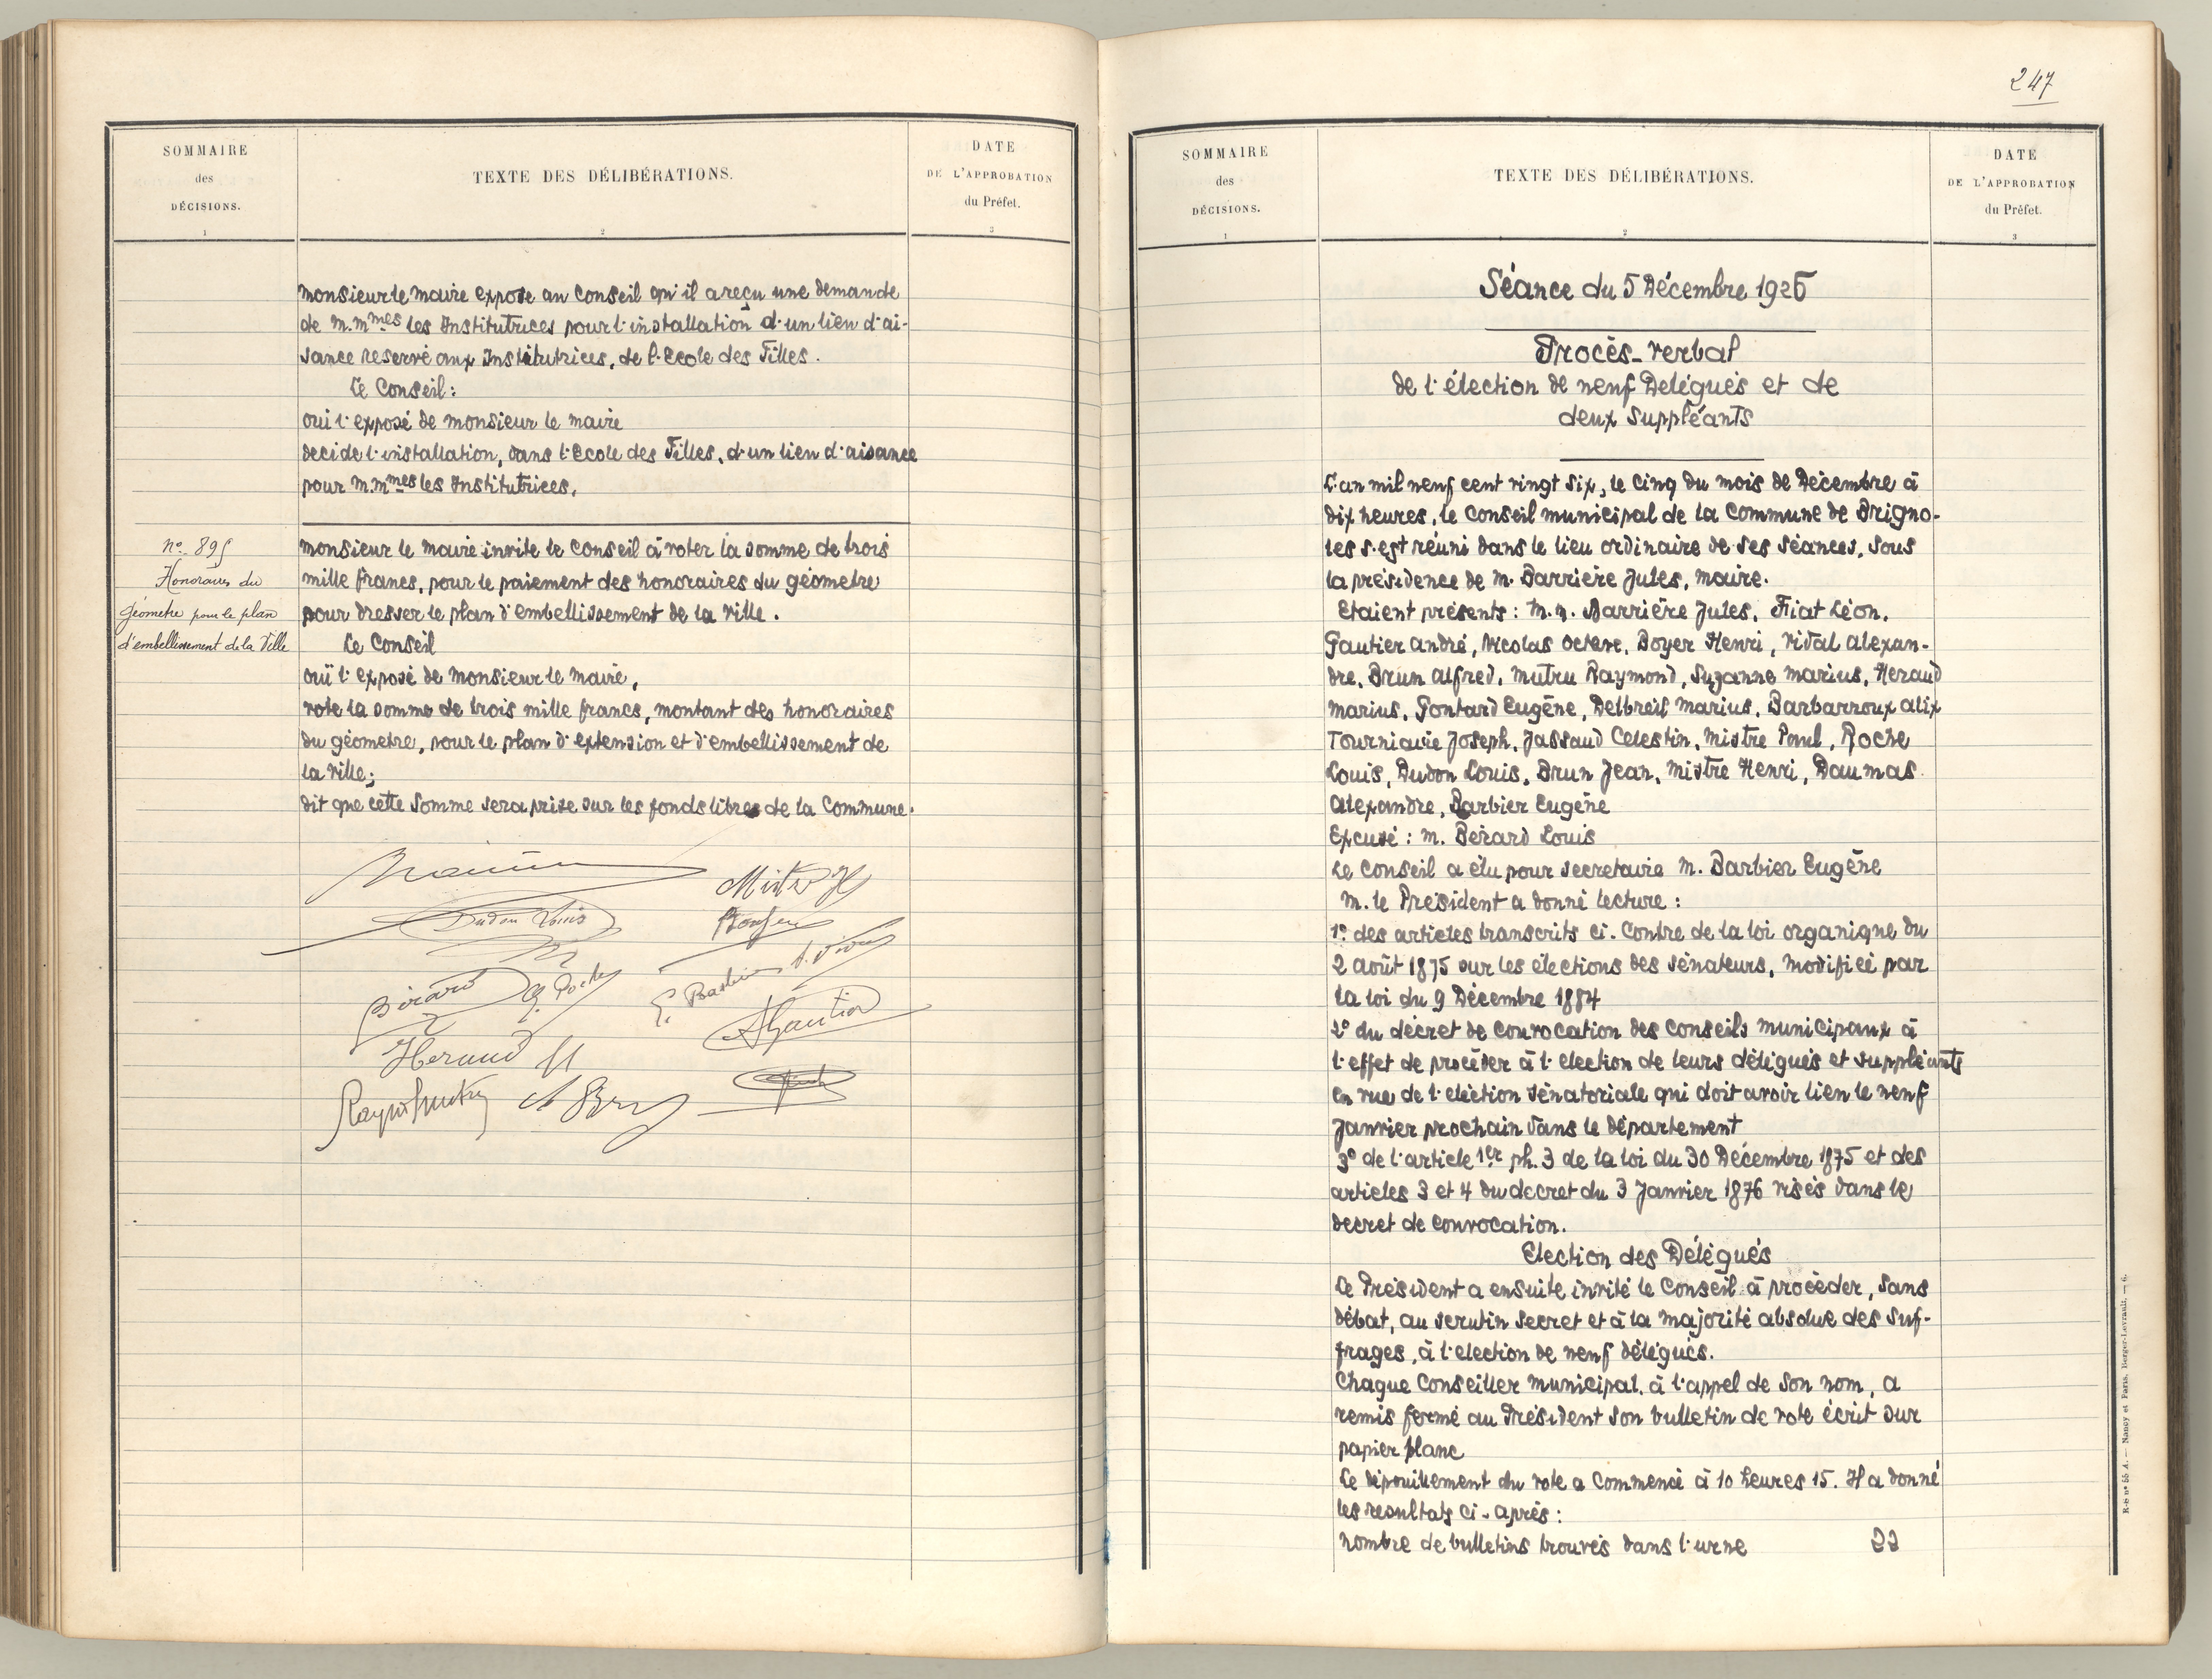 SOMMAIRE
des
DÉCISIONS.
1
TEXTE DES DÉLIBÉRATIONS.
2
DATE
DE L'APPROBATION
du Préfet.
3
monsieur le maire expose au Conseil qu'il a reçu une demande
de m.mmes les Institutrices pour l'installation d'un lieu d'ai-
sance reservé aux Institutrices, de l'Ecole des Filles.
Le Conseil:
oui l'exposé de monsieur le maire
decide l'installation, dans l'Ecole des Filles, d'un lieu d'aisance
pour m.mmes les Institutrices.
n° 895
Honoraires du
géomètre pour le plan
d'embellissement de la Ville
monsieur le maire invite le Conseil à voter la somme de trois
mille francs, pour le paiement des honoraires du géometre
pour dresser le plan d'embellissement de la Ville.
Le Conseil
ouï l'exposé de monsieur le maire,
vote la somme de trois mille francs, montant des honoraires
du géometre, pour le plan d'extension et d'embellissement de
la Ville;
dit que cette somme sera prise sur les fonds libres de la Commune.
Mistre H
Dudon Louis
Bérard
E. Barbier
A Gautier
Heraud M
247
SOMMAIRE
des
DÉCISIONS.
1
TEXTE DES DÉLIBÉRATIONS.
2
DATE
DE L'APPROBATION
du Préfet.
3
Séance du 5 Décembre 1926
Procès-verbal
de l'élection de neuf Delégués et de
deux suppléants
L'an mil neuf cent vingt six, le cinq du mois de Décembre à
dix heures, le Conseil municipal de la Commune de Brigno-
les s'est réuni dans le lieu ordinaire de ses séances, sous
la présidence de m. Barrière Jules, maire.
Etaient présents: m.m. Barrière Jules, Fiat Léon,
Gautier André, Nicolas Octave, Boyer Henri, Vidal Alexan-
dre, Brun Alfred, Mutru Raymond, Suzanne Marius, Heraud
Marius, Gontard Eugène, Delbreil Marius, Barbarroux Alix
Tourniaire Joseph, Jassaud Celestin, Mistre Paul, Roche
Louis, Dudon Louis, Brun Jean, Mistre Henri, Daumas
Alexandre, Barbier Eugène
Excusé: m. Bérard Louis
Le Conseil a élu pour secretaire m. Barbier Eugène
m. le Président a donné lecture:
1° des articles transcrits ci-contre de la loi organique du
2 août 1875 sur les élections des sénateurs, modifiée par
la loi du 9 Décembre 1884
2° du décret de convocation des Conseils municipaux à
l'effet de procéder à l'election de leurs délégués et suppléants
en vue de l'election sénatoriale qui doit avoir lieu le neuf
Janvier prochain dans le département
3° de l'article 1er ph. 3 de la loi du 30 Décembre 1875 et des
articles 3 et 4 du decret du 3 Janvier 1876 visés dans le
decret de convocation.
Election des Délégués
Le Président a ensuite invité le Conseil à procéder, sans
débat, au scrutin secret et à la majorité absolue des suf-
frages, à l'election de neuf délégués.
Chaque Conseiller municipal, à l'appel de son nom, a
remis fermé au Président son bulletin de vote écrit sur
papier blanc
Le dépouillement du vote a commencé à 10 heures 15. Il a donné
les resultats ci-après:
nombre de bulletins trouvés dans l'urne 22
R-B n° 55 A. — Nancy et Paris, Berger-Levrault. — 6.